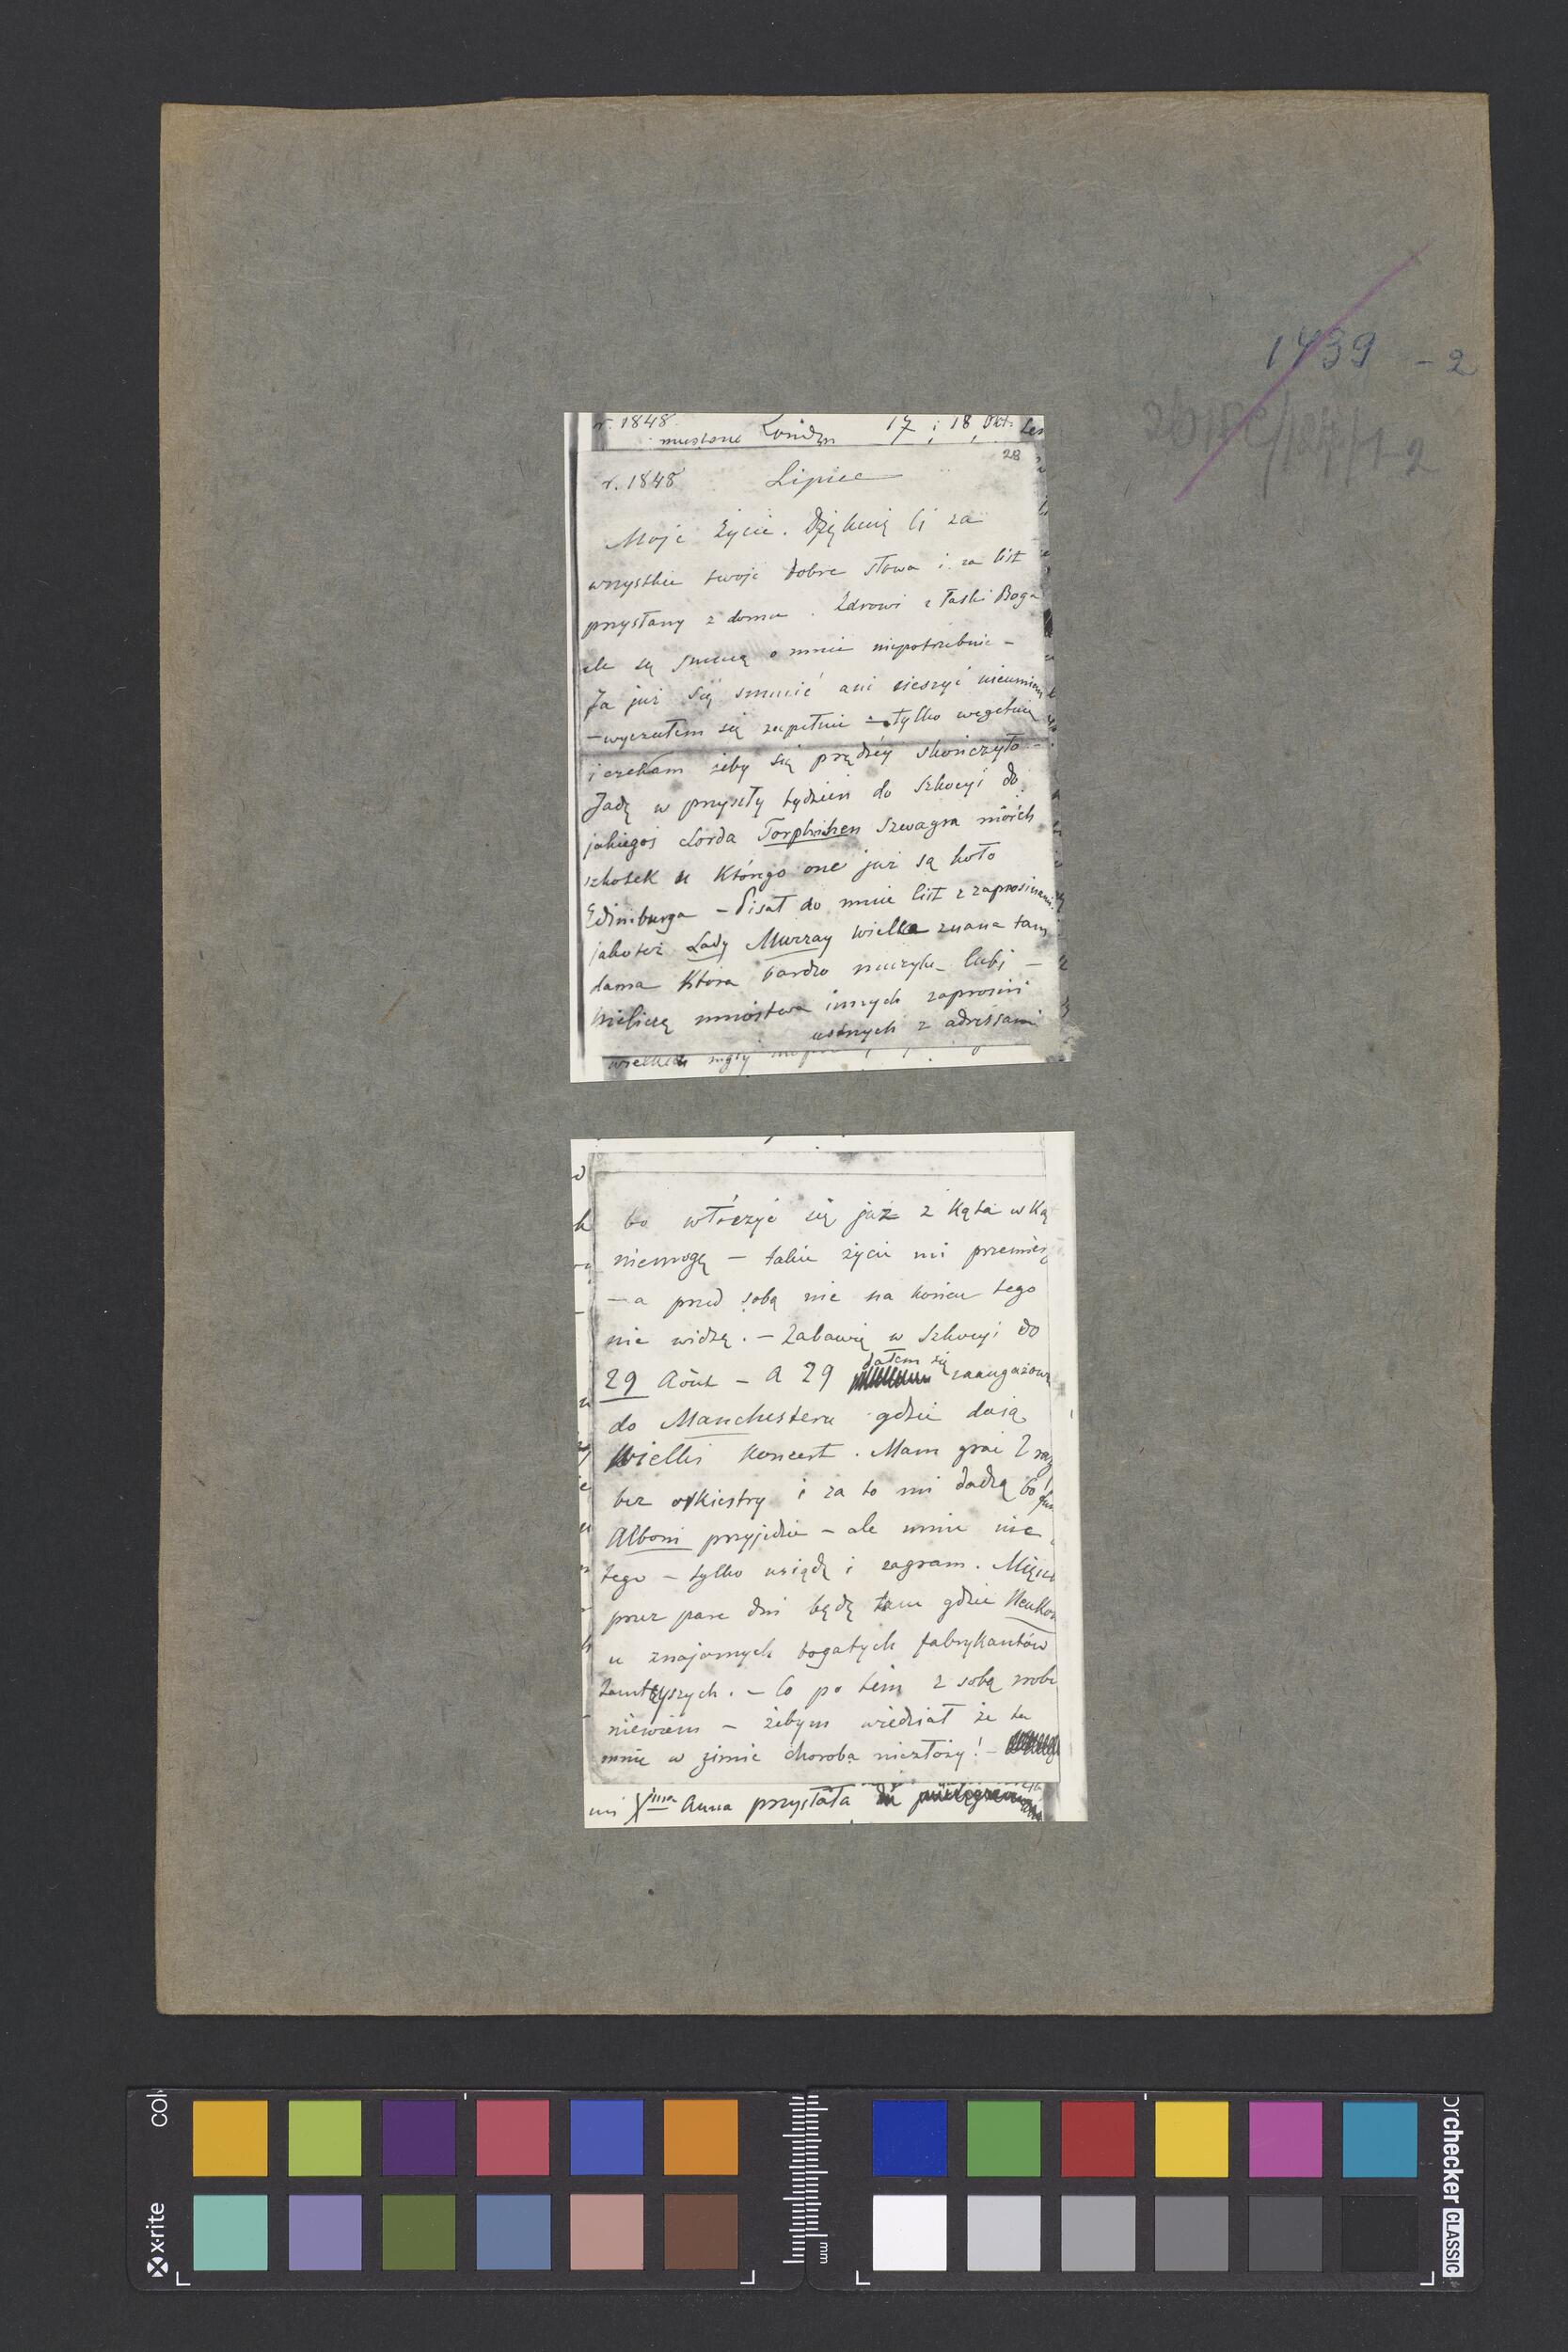 1459 - 2
r. 1848
Londyn 17 i 18 Okt.
28
r. 1848 Lipiec
Moje Życie. Dziękuię Ci za
wszystkie twoje dobre słowa i za list
przysłany z domu. Zdrowi z łaski Boga
ale się smucą o mnie niepotrzebnie –
Ja już się smucić ani cieszyć nieumiem
– wyczułem się zupełnie – tylko wegetuię
i czekam żeby się prędzéy skończyło –
Jadę w przyszły tydzień do Szkocyi do
jakiegoś Lorda Torphichen Szwagra moich
szkotek u którego one już są koło
Edinburga – Pisał do mnie list z zaprosinami
jakoteż Lady Murray wielka znana tam
dama która bardzo muzykę lubi –
Nieliczę mnóstwa innych zaprosin
ustnych z adressami
wielkich mgły
bo włóczyć się już z kąta w ką
niemogę – takie życie mi
– a przed sobą nic na końcu tego
nie widzę. – Zabawię w Szkocyi do
29 Août – a 29 dałem się zaangażowa
do Manchesteru gdzie daią
Wielki koncert. Mam grać 2 razy
bez orkiestry i za to mi dadzą 60
Alboni przyjedzie – ale mnie nic
tego – tylko usiądę i zagram.
przez pare dni będę tam gdzie Neukom
u znajomych bogatych fabrykantów
tamtẏszych. – Co po tém z sobą zrobi
niewiem – żebym wiedział że tu
mnie w zimie choroba niezłoży! –
mi Xżna Anna przysłała
x·rite
mm
colorchecker CLASSIC